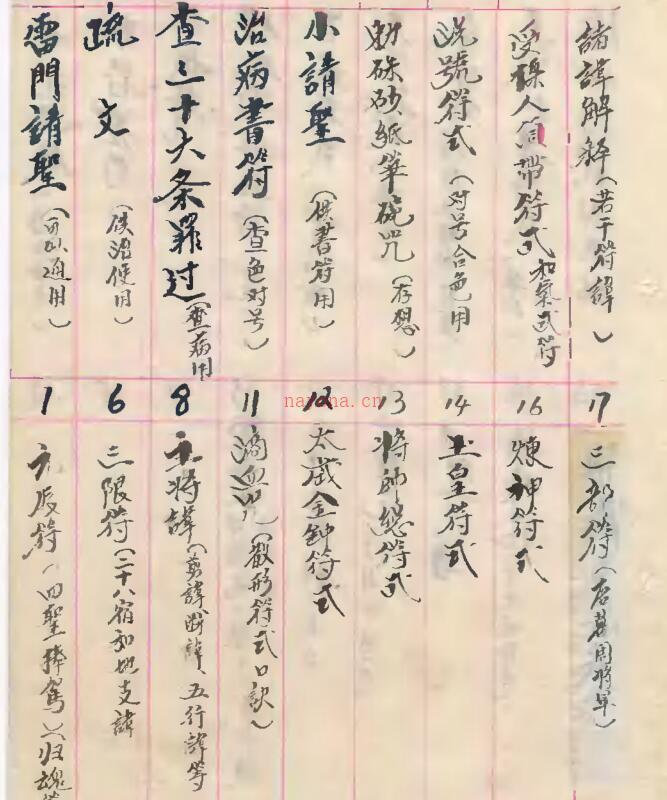 雷門請聖（可以通用）
1
疏文（供治使用）
6
查三十大条罪过（查病用
8
治病書符（查色对号）
11
小請聖（供書符用）
12
勅硃砂紙筆硯咒（存想）
13
洗號符式（对号合色用
14
受祿人 帶符式和氣式符
16
諸諱解釋（若干符諱）
17
元辰符（四聖捧駕）（归魂
三限符（二十八宿和地支諱
主将諱（剪諱、断諱、五行諱等
滴血咒（散形符式口訣）
太威金鐘符式
将帥總符式
玉皇符式
煉神符式
三部符（ 周将軍）